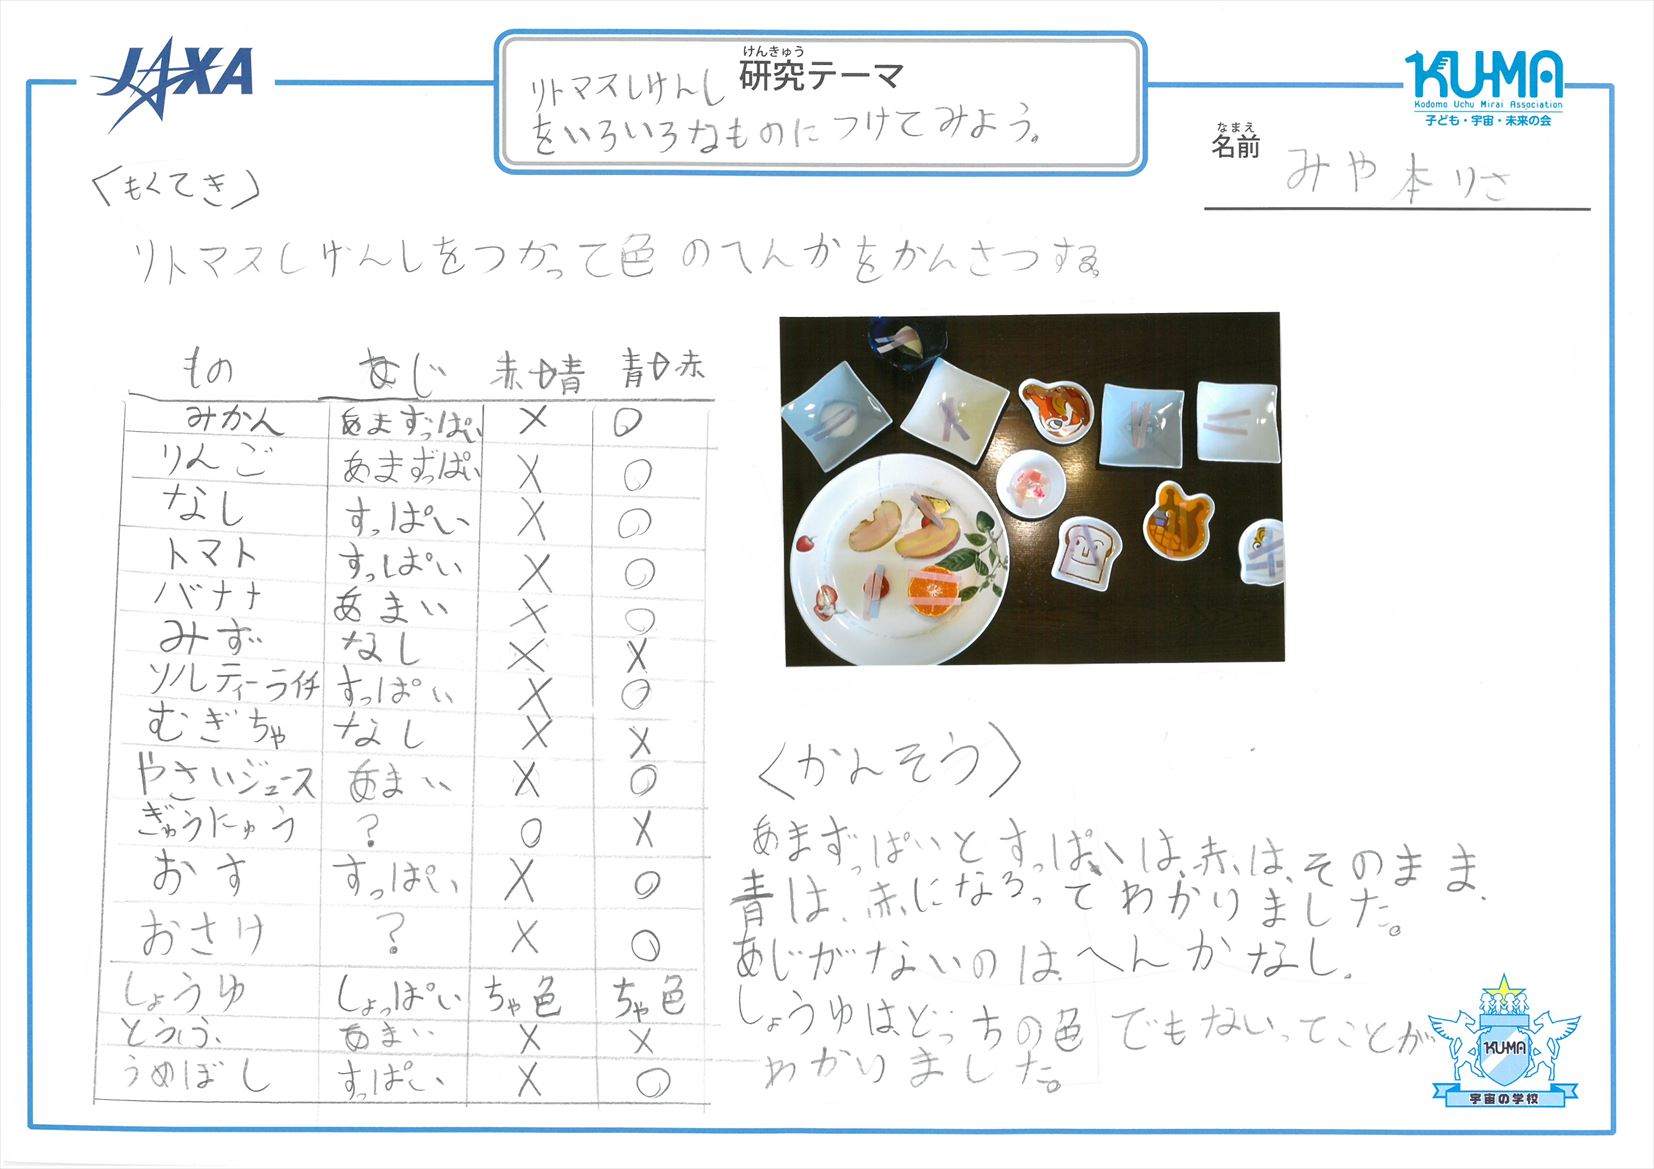 JAXA
けんきゅう
研究テーマ
リトマスしけんし
をいろいろなものにつけてみよう。
KU-MA
Kodomo Uchu Mirai Association
子ども・宇宙・未来の会
なまえ
名前
みや本りさ
〈もくてき〉
リトマスしけんしをつかって色のへんかをかんさつする。
もの あじ 赤→青 青→赤
みかん あまずっぱい × ○
りんご あまずっぱい × ○
なし すっぱい × ○
トマト すっぱい × ○
バナナ あまい × ○
みず なし × ×
ソルティーライチ すっぱい × ○
むぎちゃ なし × ×
やさいジュース あまい × ○
ぎゅうにゅう ? ○ ×
おす すっぱい × ○
おさけ ? × ○
しょうゆ しょっぱい ちゃ色 ちゃ色
とうふ あまい × ×
うめぼし すっぱい × ○
〈かんそう〉
あまずっぱいとすっぱいは、赤は、そのまま、
青は、赤になるってわかりました。
あじがないのは、へんかなし。
しょうゆはどっちの色でもないってことが
わかりました。
KU-MA
宇宙の学校